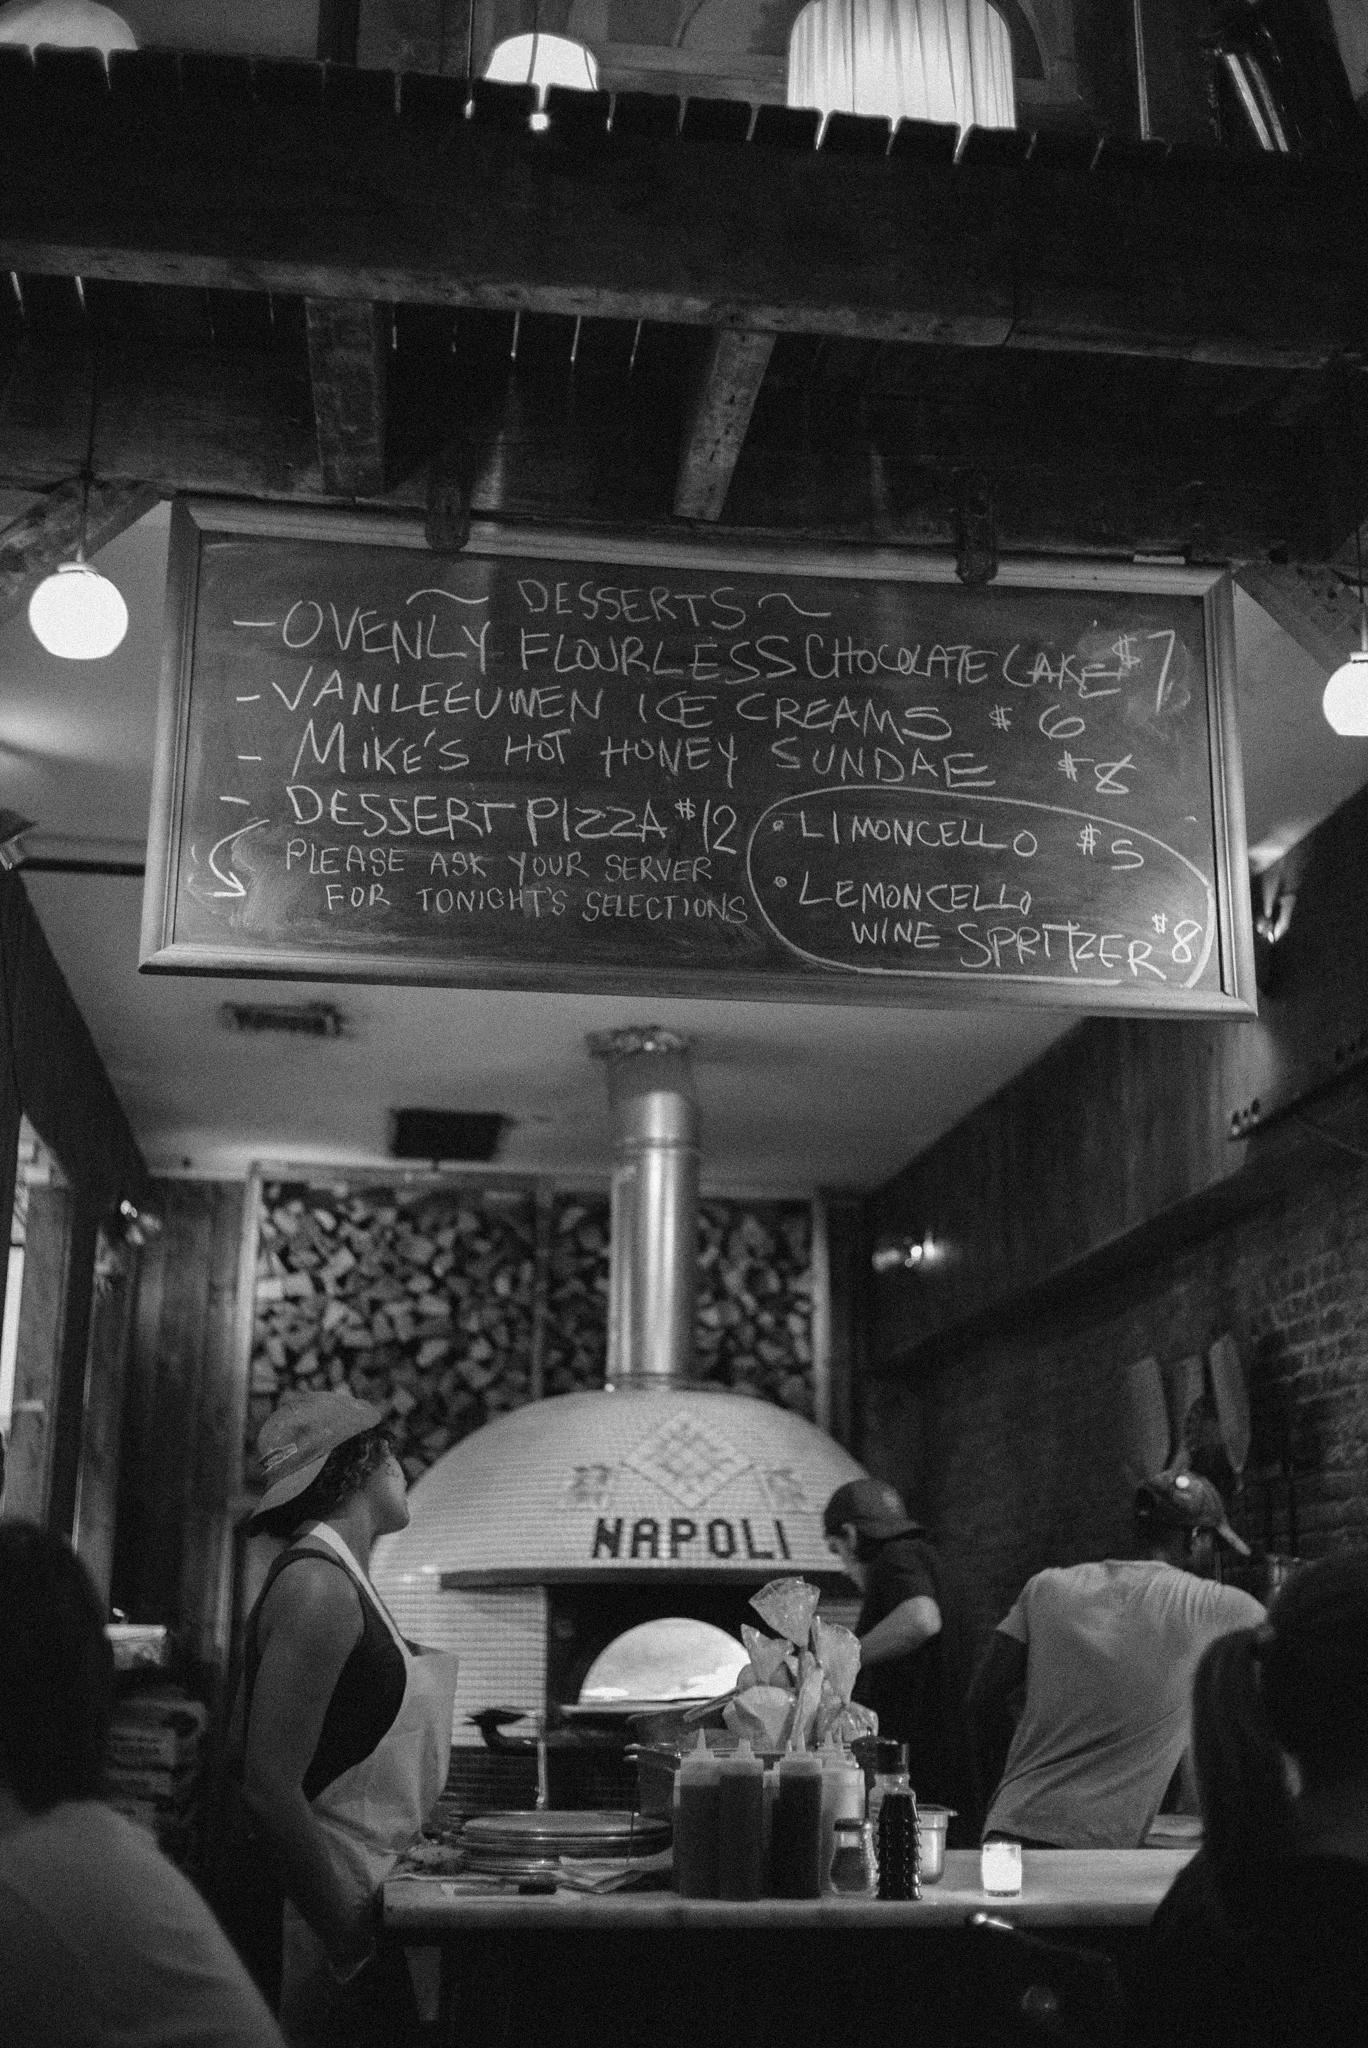 ~ DESSERTS ~
- OVENLY FLOURLESS CHOCOLATE CAKE $7
- VANLEEUWEN ICE CREAMS $6
- MIKE'S HOT HONEY SUNDAE $8
- DESSERT PIZZA $12
PLEASE ASK YOUR SERVER
FOR TONIGHT'S SELECTIONS
• LIMONCELLO $5
• LEMONCELLO
WINE SPRITZER $8
NAPOLI